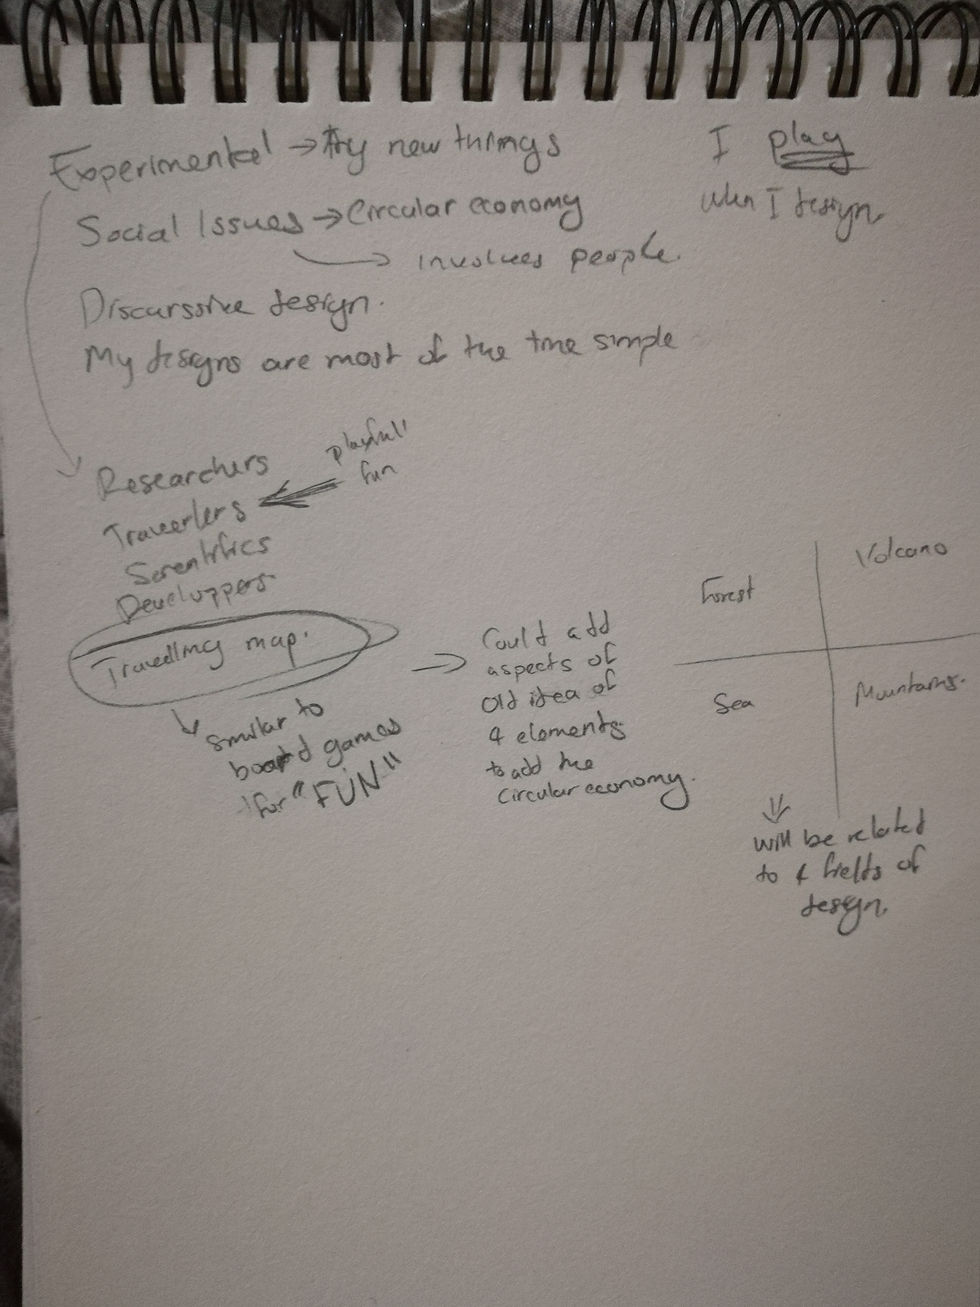 Experimental → try new things
I play
when I design.
Social Issues → Circular economy
→ involves people.
Discurssive design.
My designs are most of the time simple
Researchers
playfull
fun
Traverlers
Scientifics
Developpers
Travelling map.
similar to
board games
for "FUN"
Could add
aspects of
old idea of
4 elements
to add the
circular economy.
Forest
Volcano
Sea
Mountains.
will be related
to 4 fields of
design.